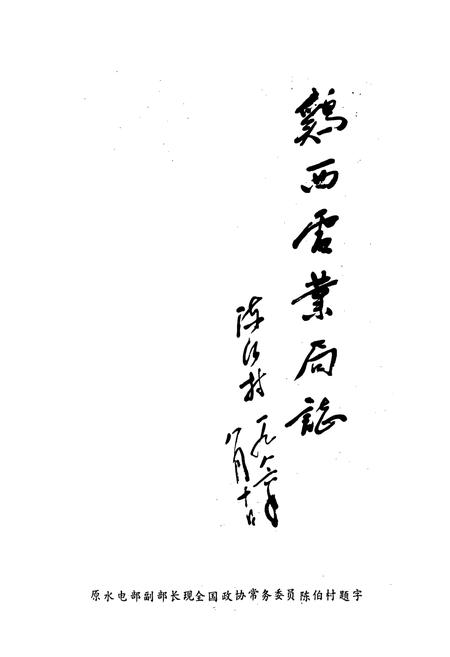 鷄西電業局誌
陈伯村
一九八六年
八月十日
原水电部副部长现全国政协常务委员陈伯村题字